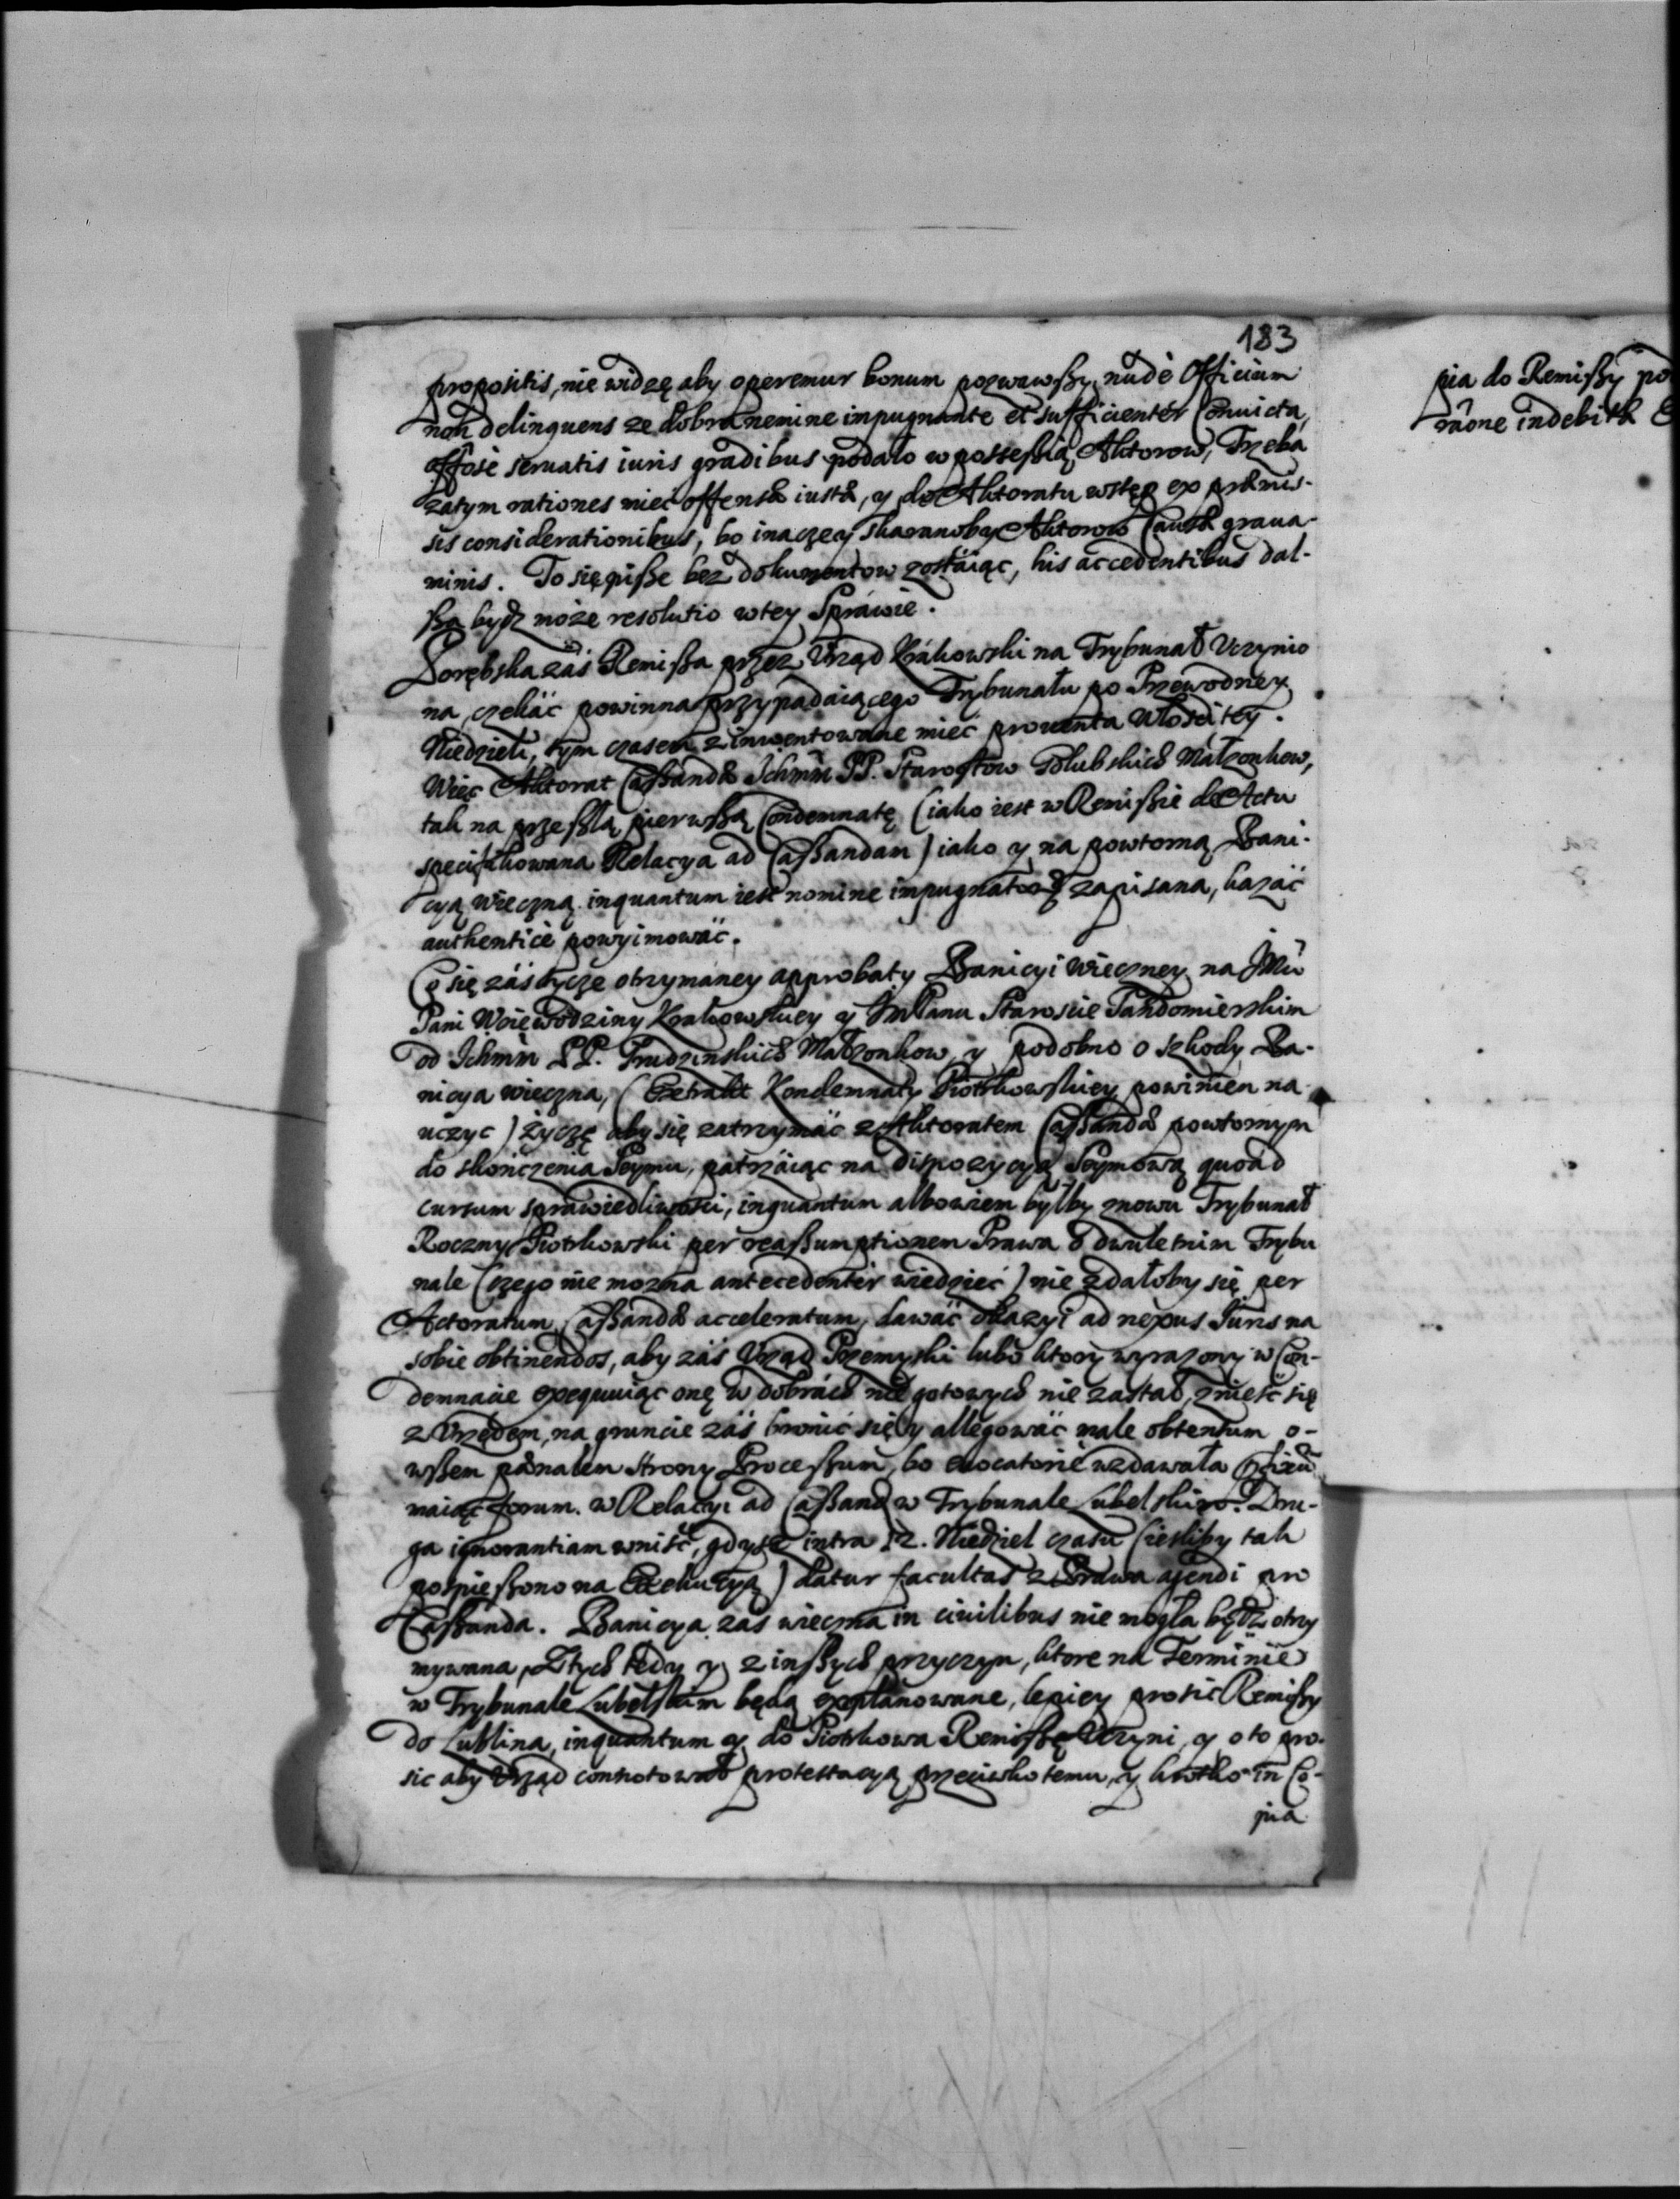 183
propositis, nie widzę aby operemur bonum pozwawszy, nudè Officium
non delinquens ze dobra nemine impugnante et sufficientèr Convicta,
offosè seruatis iuris gradibus podało w possessią Aktorow, Trzeba
zatym rationes mieć offensæ iustæ, y do Aktoratu wstęp ex præmis-
sis considerationibus, bo inaczey skaranoby Aktorow Causâ graua-
minis. To się pisze bez dokumentow zostaiąc, his accedentibus dal-
sza bydz może resolutio w tey Sprawie.
Porębska zaś Remissa przez Urząd Krakowski na Trybunał Uczynio
na, czekać powinna przypadaiącego Trybunału po Przewodney
Niedzieli, tym czasem zinwentowane mieć prouenta Włości tey.
Więc Aktorat Cassandæ Ichmm PP. Starostow Golubskich Małzonkow,
tak na przeszłą pierwszą Condemnatę (iako iest w Remissie de Actu
specifikowana Relacya ad Cassandam) iako y na powtorną Bani-
cyą wieczną inquantum iest nomine zapisana, kazać
authenticè powyimować.
Co się zaś tycze otrzymaney approbaty Banicyi wieczney na JMci
Pani Woiewodziny Krakowskiey y JmPanu Staroscie Sandomierskim
od Ichmm PP. Małzonkow, y podobno o szkody Ba-
nicya wieczna, (Extrakt Kondemnaty Piotrkowskiey powinien na
uczyc) życzę aby się zatrzymać z Aktoratem Cassandæ powtornym
do skończenia Seymu, patrzaiąc na dispozycyą Seymową quoad
cursum sprawiedliwości, inquantum albowiem byłby znowu Trybunał
Roczny Piotrkowski per reassumptionem Prawa o dwuletnim Trybu
nale (czego nie mozna antecedentèr wiedzieć) nie zdałoby się per
Actoratum Cassandæ acceleratum, dawać okazyi ad nexus Juris na
sobie obtinendos, aby zaś Urząd Przemyski lubo ktory wyrazony w Con-
demnacie exequuiąc onę w dobrach nie gotowych nie zastał, znieść się
z Urzędem, na gruncie zaś bronić się y allegować male obtentum o-
wszem pœnalem strony Processum, bo euocatoriè wzdawała
maiąc forum. w Relacyi ad Cassand w Trybunale Lubelskim. Dru-
ga ignorantiam wnieść, gdysz intra 12. Niedziel czasu (iesliby tak
pospieszono na Exekucyą) datur facultas z Prawa agendi pro
Cassanda. Banicya zaś wieczna in ciuilibus nie mogła bydz otrzy
mywana, Z tych tedy y z inszych przyczyn, ktore na Terminie
w Trybunale Lubelskim będą explanowane, lepiey prosic Remissy
do Lublina, inquantum y do Piotrkowa Remissę Uczyni, y o to pro-
sic aby Urząd connotował protestacyą przeciwko temu, y krotko in Co-
pia
pia do Remissy po
indebitæ